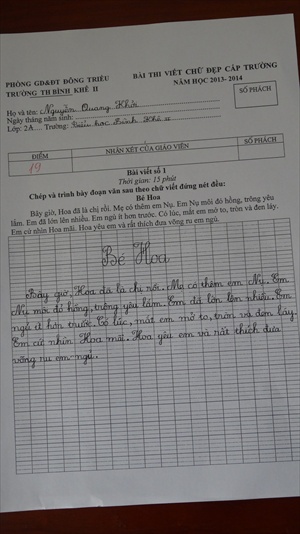 PHÒNG GD&ĐT ĐÔNG TRIỀU
TRƯỜNG TH BÌNH KHÊ II
BÀI THI VIẾT CHỮ ĐẸP CẤP TRƯỜNG
NĂM HỌC 2013- 2014
Họ và tên: Nguyễn Quang Khởi
Ngày tháng năm sinh:
Lớp: 2A.... Trường: Tiểu học Bình Khê II
SỐ PHÁCH
ĐIỂM
NHẬN XÉT CỦA GIÁO VIÊN
SỐ PHÁCH
19
Bài viết số 1
Thời gian: 15 phút
Chép và trình bày đoạn văn sau theo chữ viết đứng nét đều:
Bé Hoa
Bây giờ, Hoa đã là chị rồi. Mẹ có thêm em Nụ. Em Nụ môi đỏ hồng, trông yêu
lắm. Em đã lớn lên nhiều. Em ngủ ít hơn trước. Có lúc, mắt em mở to, tròn và đen láy.
Em cứ nhìn Hoa mãi. Hoa yêu em và rất thích đưa võng ru em ngủ.
Bé Hoa
Bây giờ, Hoa đã là chị rồi. Mẹ có thêm em Nụ. Em
Nụ môi đỏ hồng, trông yêu lắm. Em đã lớn lên nhiều. Em
ngủ ít hơn trước. Có lúc, mắt em mở to, tròn và đen láy.
Em cứ nhìn Hoa mãi. Hoa yêu em và rất thích đưa
võng ru em ngủ.